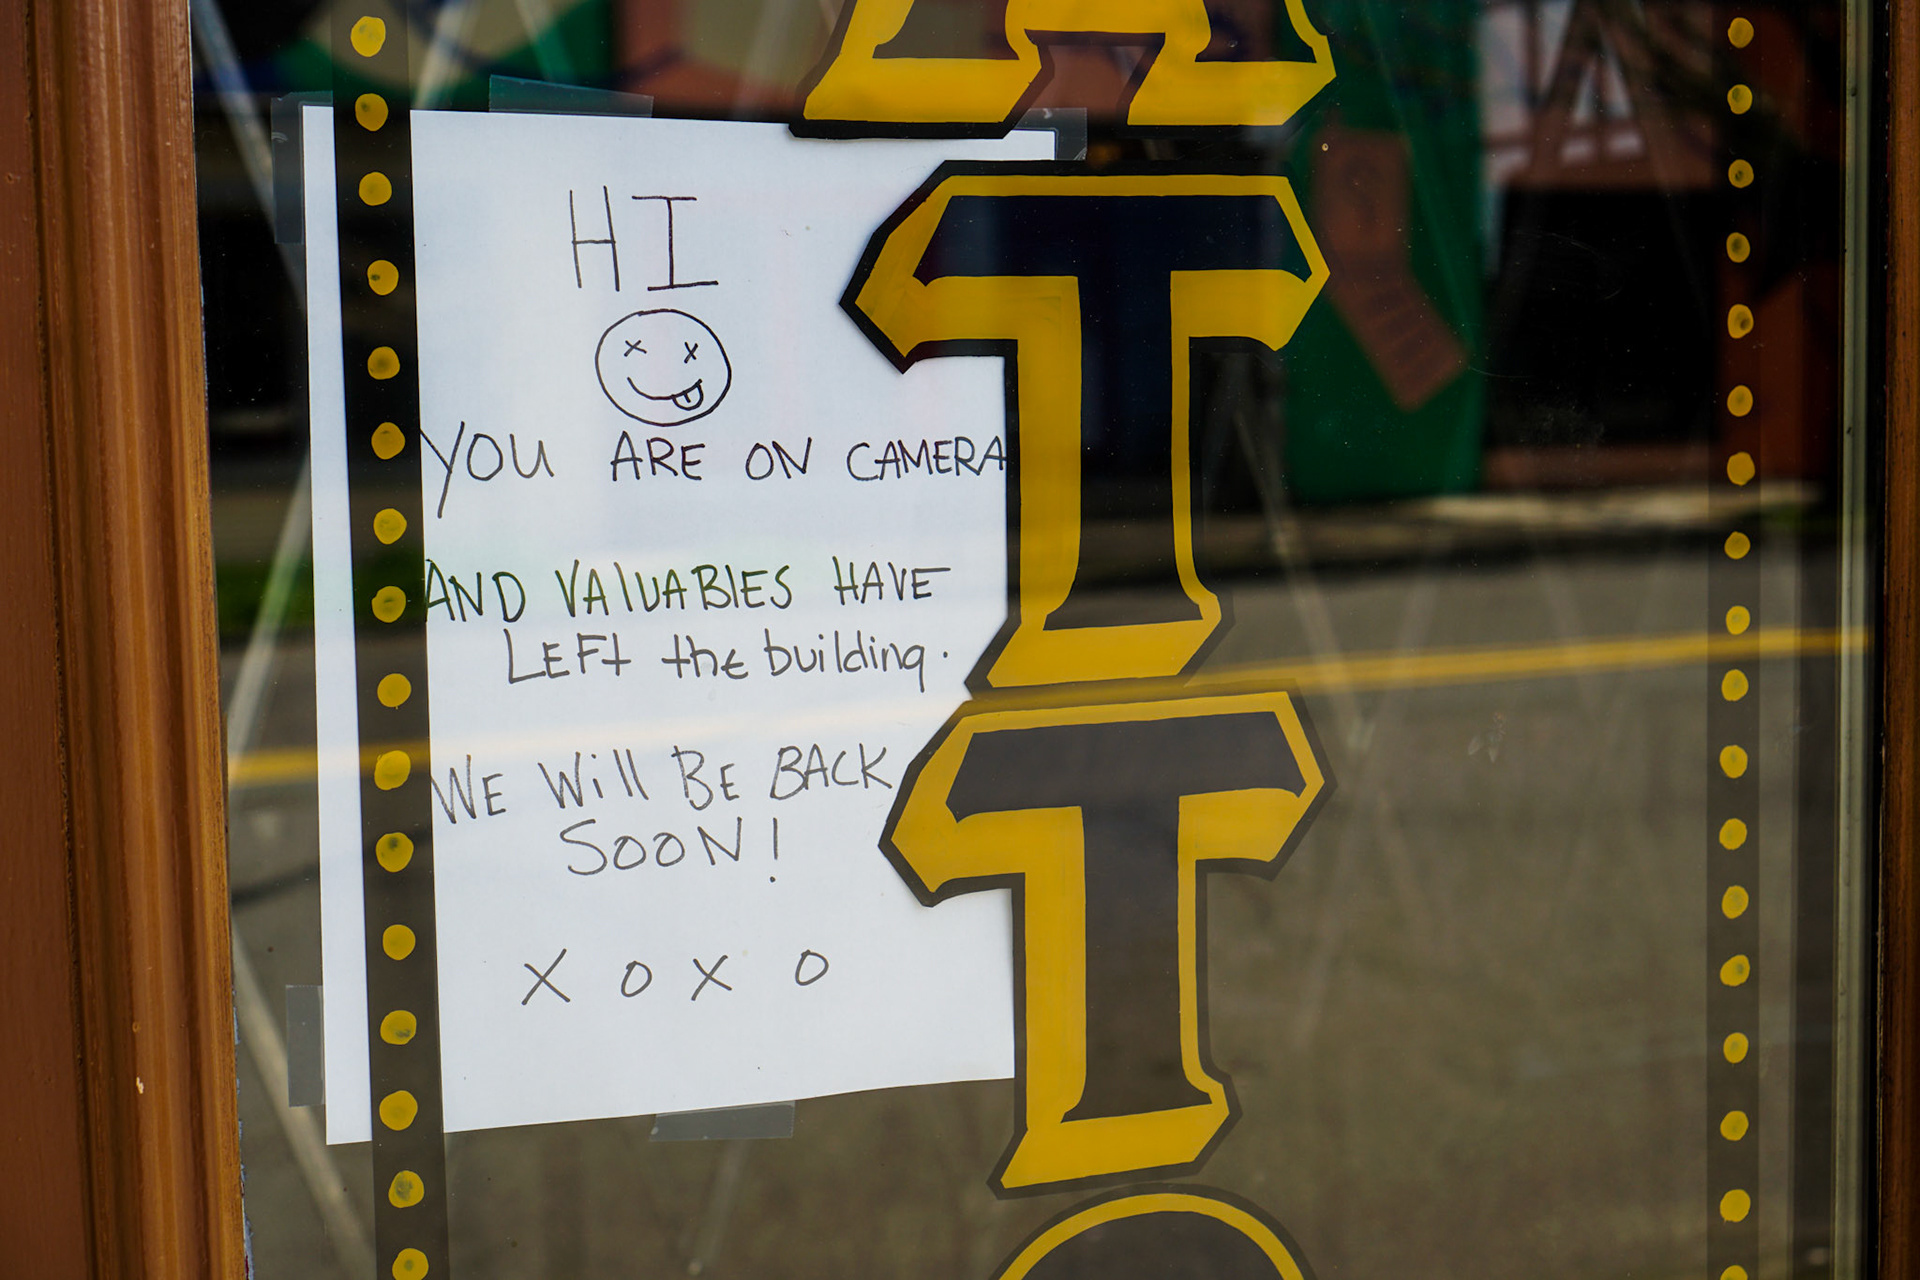 HI
YOU ARE ON CAMERA
AND VAlUABlES HAVE
LEFt the building.
WE Will BE BACK
SOON!
X O X O
A
T
T
O